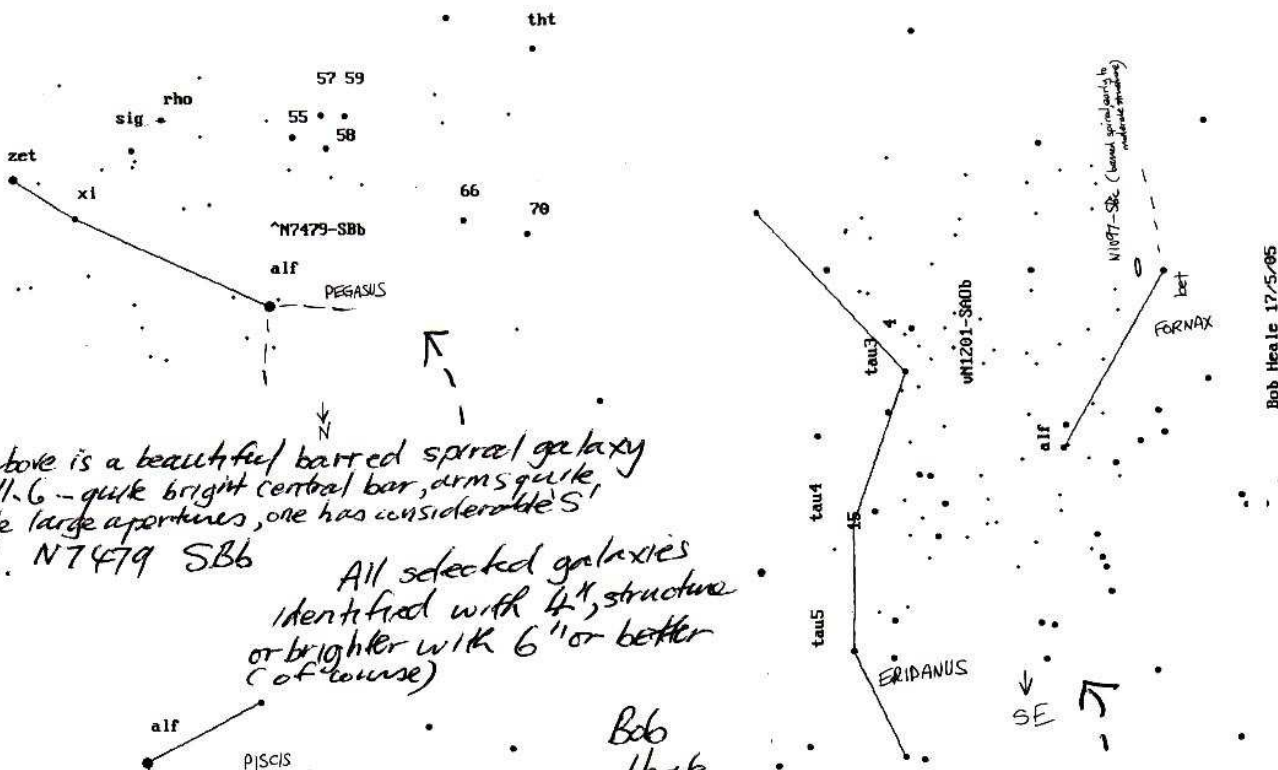 tht
57 59
rho
sig
55
58
zet
xi
66
70
^N7479-SBb
alf
PEGASUS
N
bove is a beautiful barred spiral galaxy
11.6 - quite bright central bar, arms quite
e large apertures, one has considerable 'S'
. N7479 SBb
All selected galaxies
identified with 4", structure
or brighter with 6" or better
(of course)
alf
PISCIS
Bob
N1097-SBc (barred spiral, early to
moderate structure)
bet
FORNAX
alf
4
tau3
vN1201-SA0b
tau4
15
tau5
ERIDANUS
SE
Bob Heale 17/5/05